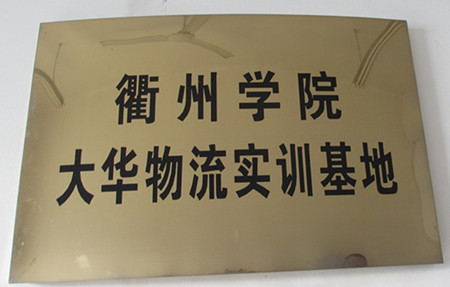 衢州学院
大华物流实训基地